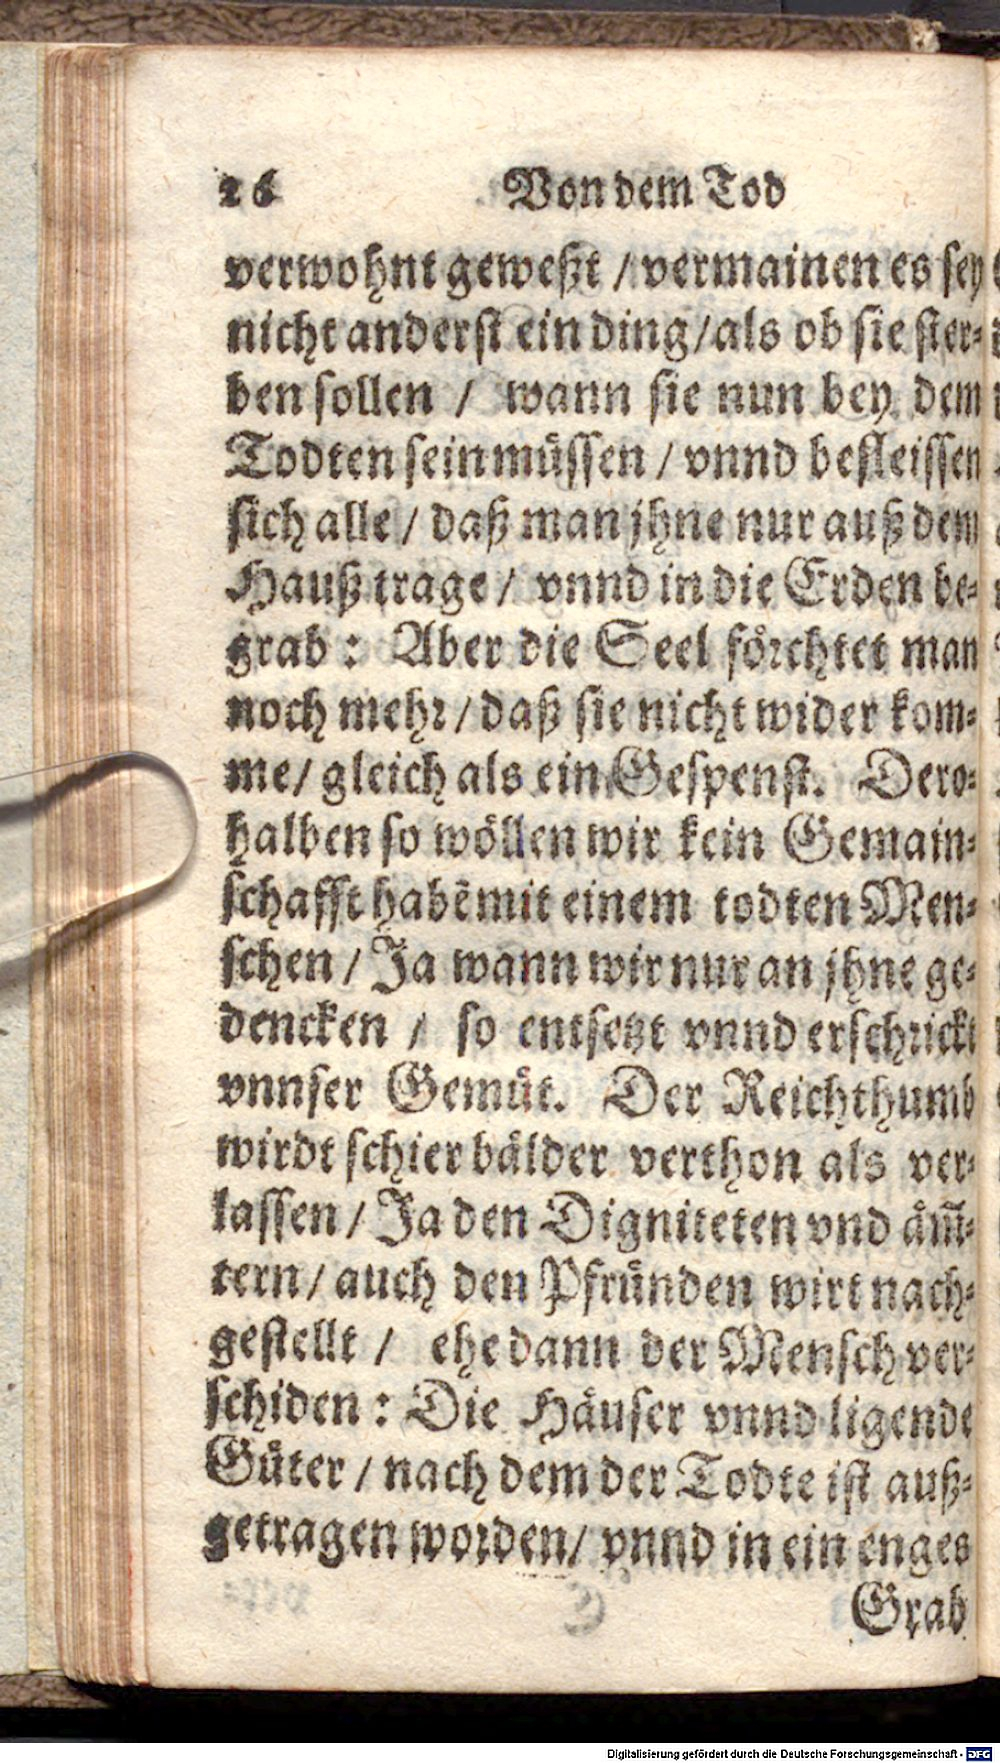 26 Von dem Tod
verwohnt geweßt / vermainen es sey
nicht anderst ein ding / als ob sie ster-
ben sollen / wann sie nun bey dem
Todten sein müssen / vnnd befleissen
sich alle / daß man jhne nur auß dem
Hauß trage / vnnd in die Erden be-
grab : Aber die Seel förchtet man
noch mehr / daß sie nicht wider kom-
me / gleich als ein Gespenst. Dero-
halben so wöllen wir kein Gemain-
schafft habẽ mit einem todten Men-
schen / Ja wann wir nur an jhne ge-
dencken / so entsetzt vnnd erschrickt
vnnser Gemüt. Der Reichthumb
wirdt schier bälder verthon als ver-
lassen / Ja den Digniteten vnd äm̃-
tern / auch den Pfründen wirt nach-
gestellt / ehe dann der Mensch ver-
schiden : Die Häuser vnnd ligende
Güter / nach dem der Todte ist auß-
getragen worden / vnnd in ein enges
Grab
Digitalisierung gefördert durch die Deutsche Forschungsgemeinschaft - DFG